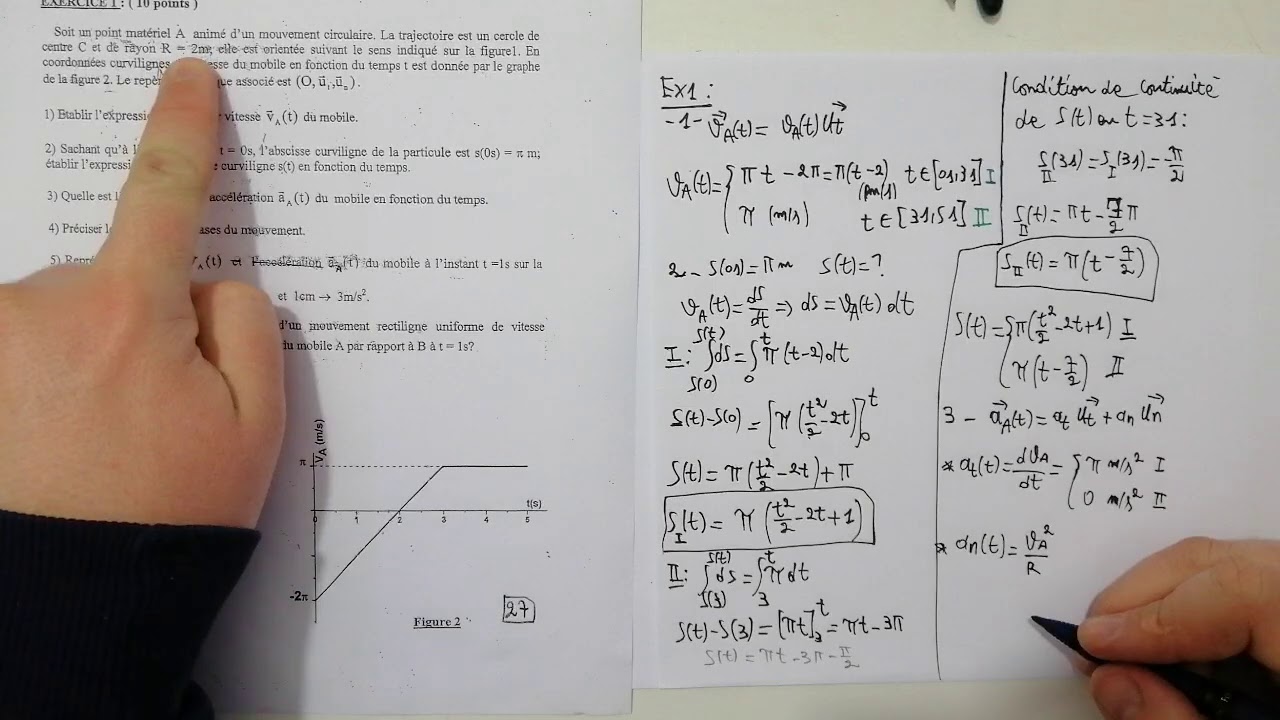 EXERCICE 1 : ( 10 points )
Soit un point matériel A animé d'un mouvement circulaire. La trajectoire est un cercle de
centre C et de rayon R = 2m, elle est orientée suivant le sens indiqué sur la figure1. En
coordonnées curvilignes esse du mobile en fonction du temps t est donnée par le graphe
de la figure 2. Le que associé est (O, u⃗t, u⃗n).
1) Etablir l'expressi vitesse v⃗A(t) du mobile.
2) Sachant qu'à t = 0s, l'abscisse curviligne de la particule est s(0s) = π m;
établir l'expressi curviligne s(t) en fonction du temps.
3) Quelle est l accélération a⃗A(t) du mobile en fonction du temps.
4) Préciser ases du mouvement.
5) Repré A(t) et l'accélération a⃗A(t) du mobile à l'instant t =1s sur la
et 1cm → 3m/s².
d'un mouvement rectiligne uniforme de vitesse
du mobile A par rapport à B à t = 1s?
VA (m/s)
π
t(s)
0 1 2 3 4 5
-2π
Figure 2
27
Ex1 :
-1- v⃗A(t) = vA(t) u⃗t
vA(t) = { πt - 2π = π(t-2) t ∈ [0s,3s] I
(m/s)
π (m/s) t ∈ [3s,5s] II
2 - s(0s) = π m s(t) = ?
vA(t) = ds/dt ⇒ ds = vA(t) dt
I : ∫_{s(0)}^{s(t)} ds = ∫_0^t π(t-2) dt
s(t) - s(0) = [π(t²/2 - 2t)]_0^t
s(t) = π(t²/2 - 2t) + π
s_I(t) = π(t²/2 - 2t + 1)
II : ∫_{s(3)}^{s(t)} ds = ∫_3^t π dt
s(t) - s(3) = [πt]_3^t = πt - 3π
s(t) = πt - 3π - π/2
Condition de continuité
de s(t) en t = 3s :
s_II(3s) = s_I(3s) = -π/2
s_II(t) = πt - 7/2 π
s_II(t) = π(t - 7/2)
s(t) = { π(t²/2 - 2t + 1) I
π(t - 7/2) II
3 - a⃗A(t) = at u⃗t + an u⃗n
* at(t) = dvA/dt = { π m/s² I
0 m/s² II
* an(t) = vA²/R